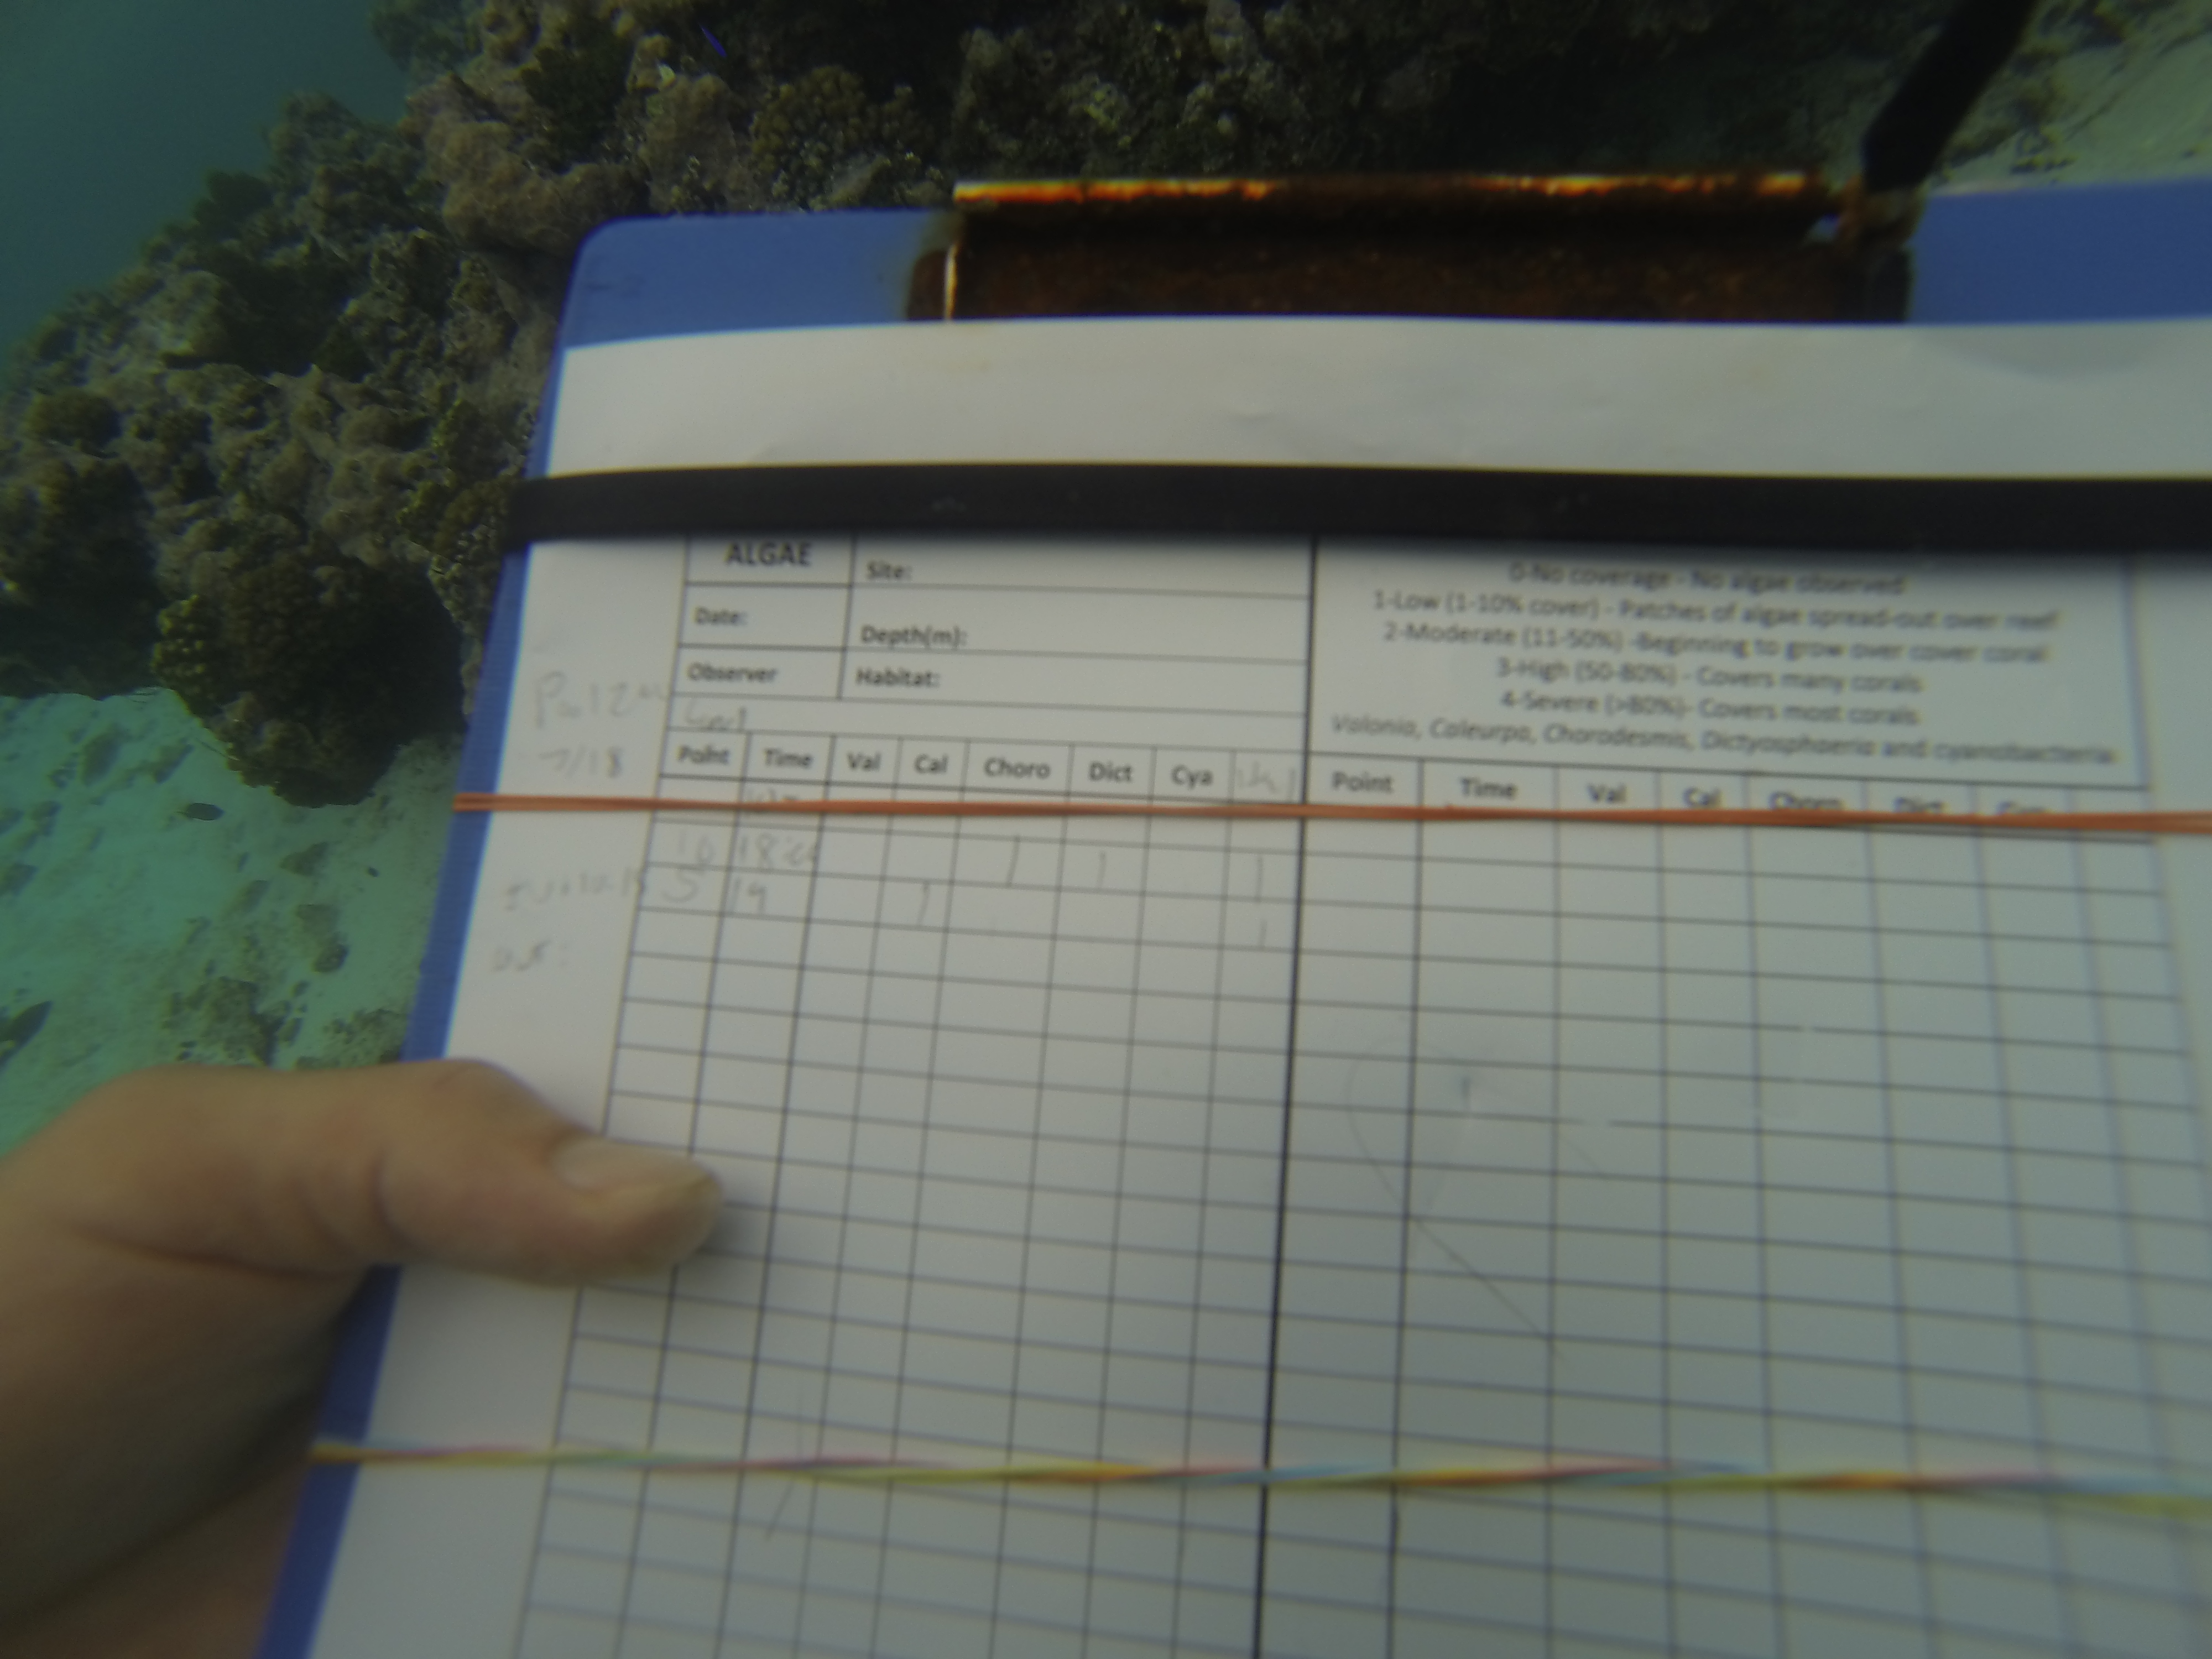 ALGAE
Site:
Date:
Depth(m):
Observer
Habitat:
0-No coverage - No algae observed
1-Low (1-10% cover) - Patches of algae spread-out over reef
2-Moderate (11-50%) -Beginning to grow over cover coral
3-High (50-80%) - Covers many corals
4-Severe (>80%)- Covers most corals
Valonia, Caleurpa, Chorodesmis, Dictyosphaeria and cyanobacteria
Point Time Val Cal Choro Dict Cya
Point Time Val Cal Choro Dict Cya
7/18
10 1 1 1
5 19 1 1